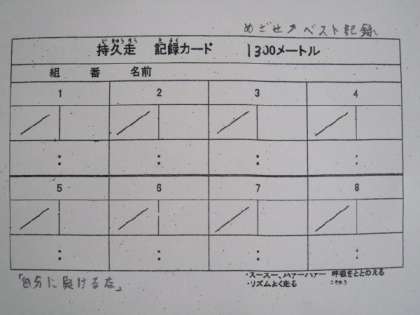 めざせ!ベスト記録
じきゅうそう きろく
持久走 記録カード 1300メートル
組 番 名前
1 2 3 4
/ / / /
: : : :
5 6 7 8
/ / / /
: : : :
・スースー、ハァーハァー 呼吸をととのえる
・リズムよく走る こきゅう
「自分に負けるな」